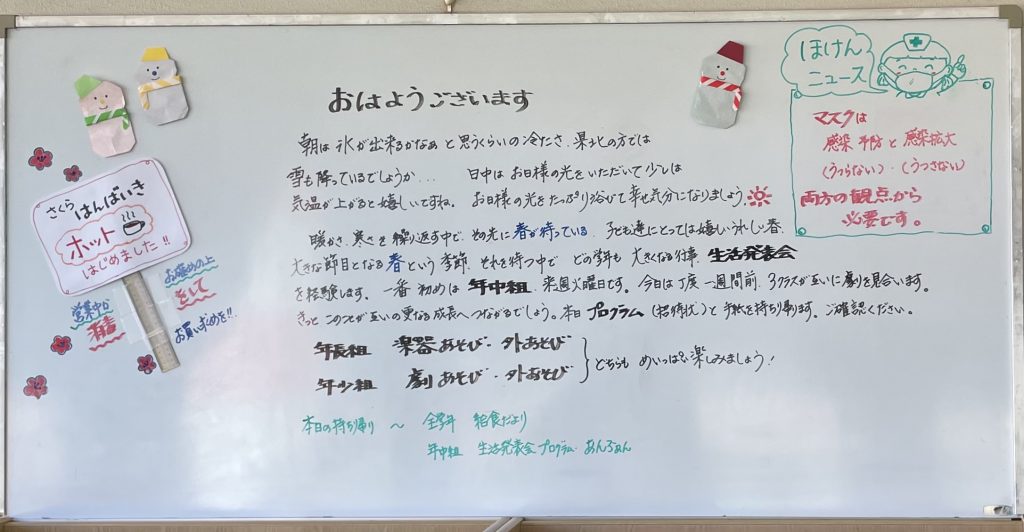 おはようございます
朝は氷が出来るかなぁと思うくらいの冷たさ.県北の方では
雪も降っているでしょうか... 日中はお日様の光をいただいて少しは
気温が上がると嬉しいですね。お日様の光をたっぷり浴びて幸せ気分になりましょう
暖かさ.寒さを繰り返す中で.その先に春が待っている.子ども達にとっては嬉しい.うれしい春.
大きな節目となる春という季節.それを待つ中で どの学年も 大きくなる行事.生活発表会
を経験します。一番初めは年中組.来週火曜日です。今日は丁度一週間前.3クラスが互いに劇を見合います。
きっとこのことが互いの更なる成長へつながるでしょう。本日プログラム(招待状)と手紙を持ち帰ります。ご確認ください。
年長組 楽器あそび・外あそび
年少組 劇あそび・外あそび
どちらも めいっぱい楽しみましょう!
本日の持ち帰り 〜 全学年 給食だより
年中組 生活発表会プログラム・あんふぁん
ほけん
ニュース
マスクは
感染予防と感染拡大
(うつらない)・(うつさない)
両方の観点から
必要です。
さくら はんばいき
ホット
はじめました!!
営業中か
お確めの上
消毒
をして
お買い求めを!!